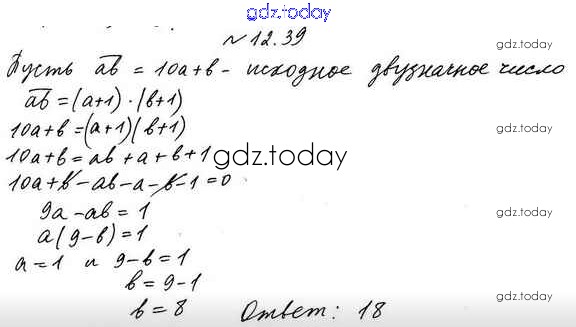 gdz.today
№12.39
gdz.today
Пусть ab = 10a+b - исходное двузначное число
ab = (a+1)·(b+1)
10a+b = (a+1)(b+1)
gdz.today
10a+b = ab+a+b+1
gdz.today
10a+b-ab-a-b-1=0
9a-ab=1
gdz.today
a(9-b)=1
a=1 и 9-b=1
b=9-1
gdz.today
b=8 Ответ: 18